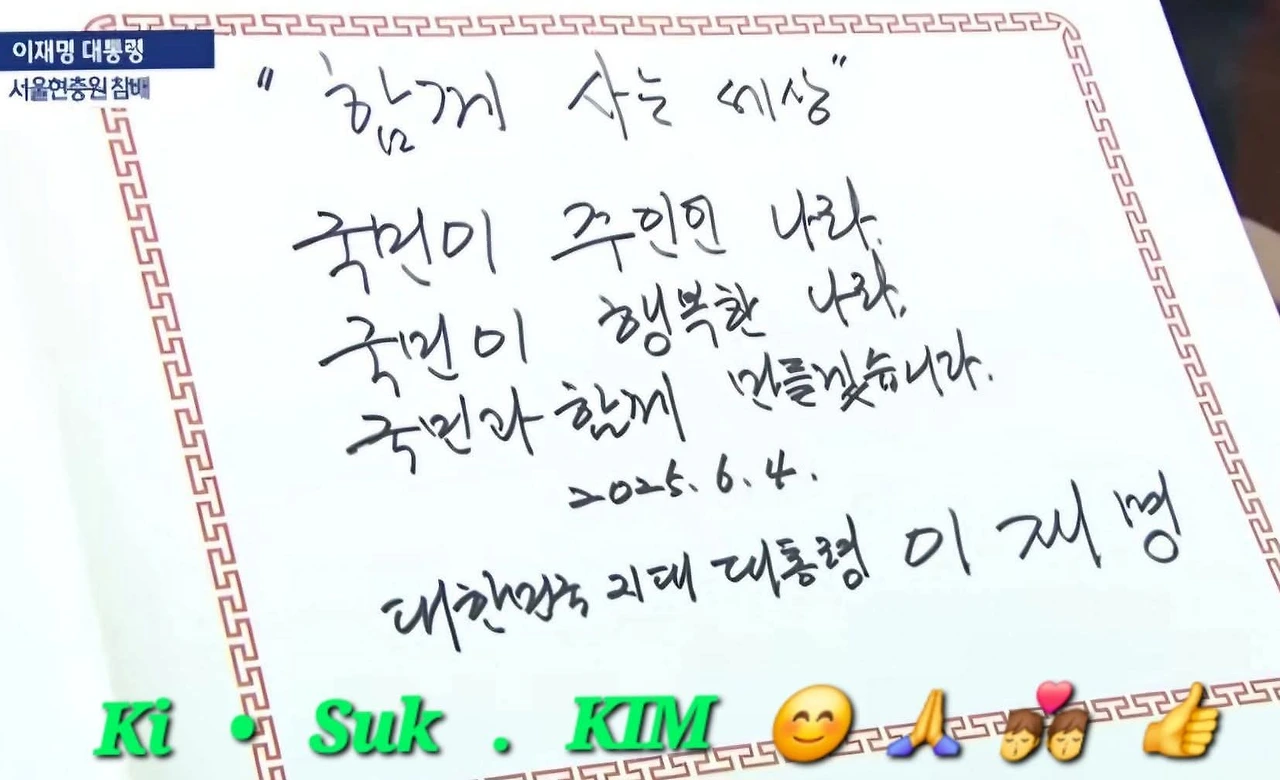 이재명 대통령
서울현충원 참배
"함께 사는 세상"
국민이 주인인 나라,
국민이 행복한 나라,
국민과 함께 만들겠습니다.
2025. 6. 4.
대한민국 21대 대통령 이재명
Ki • Suk . KIM